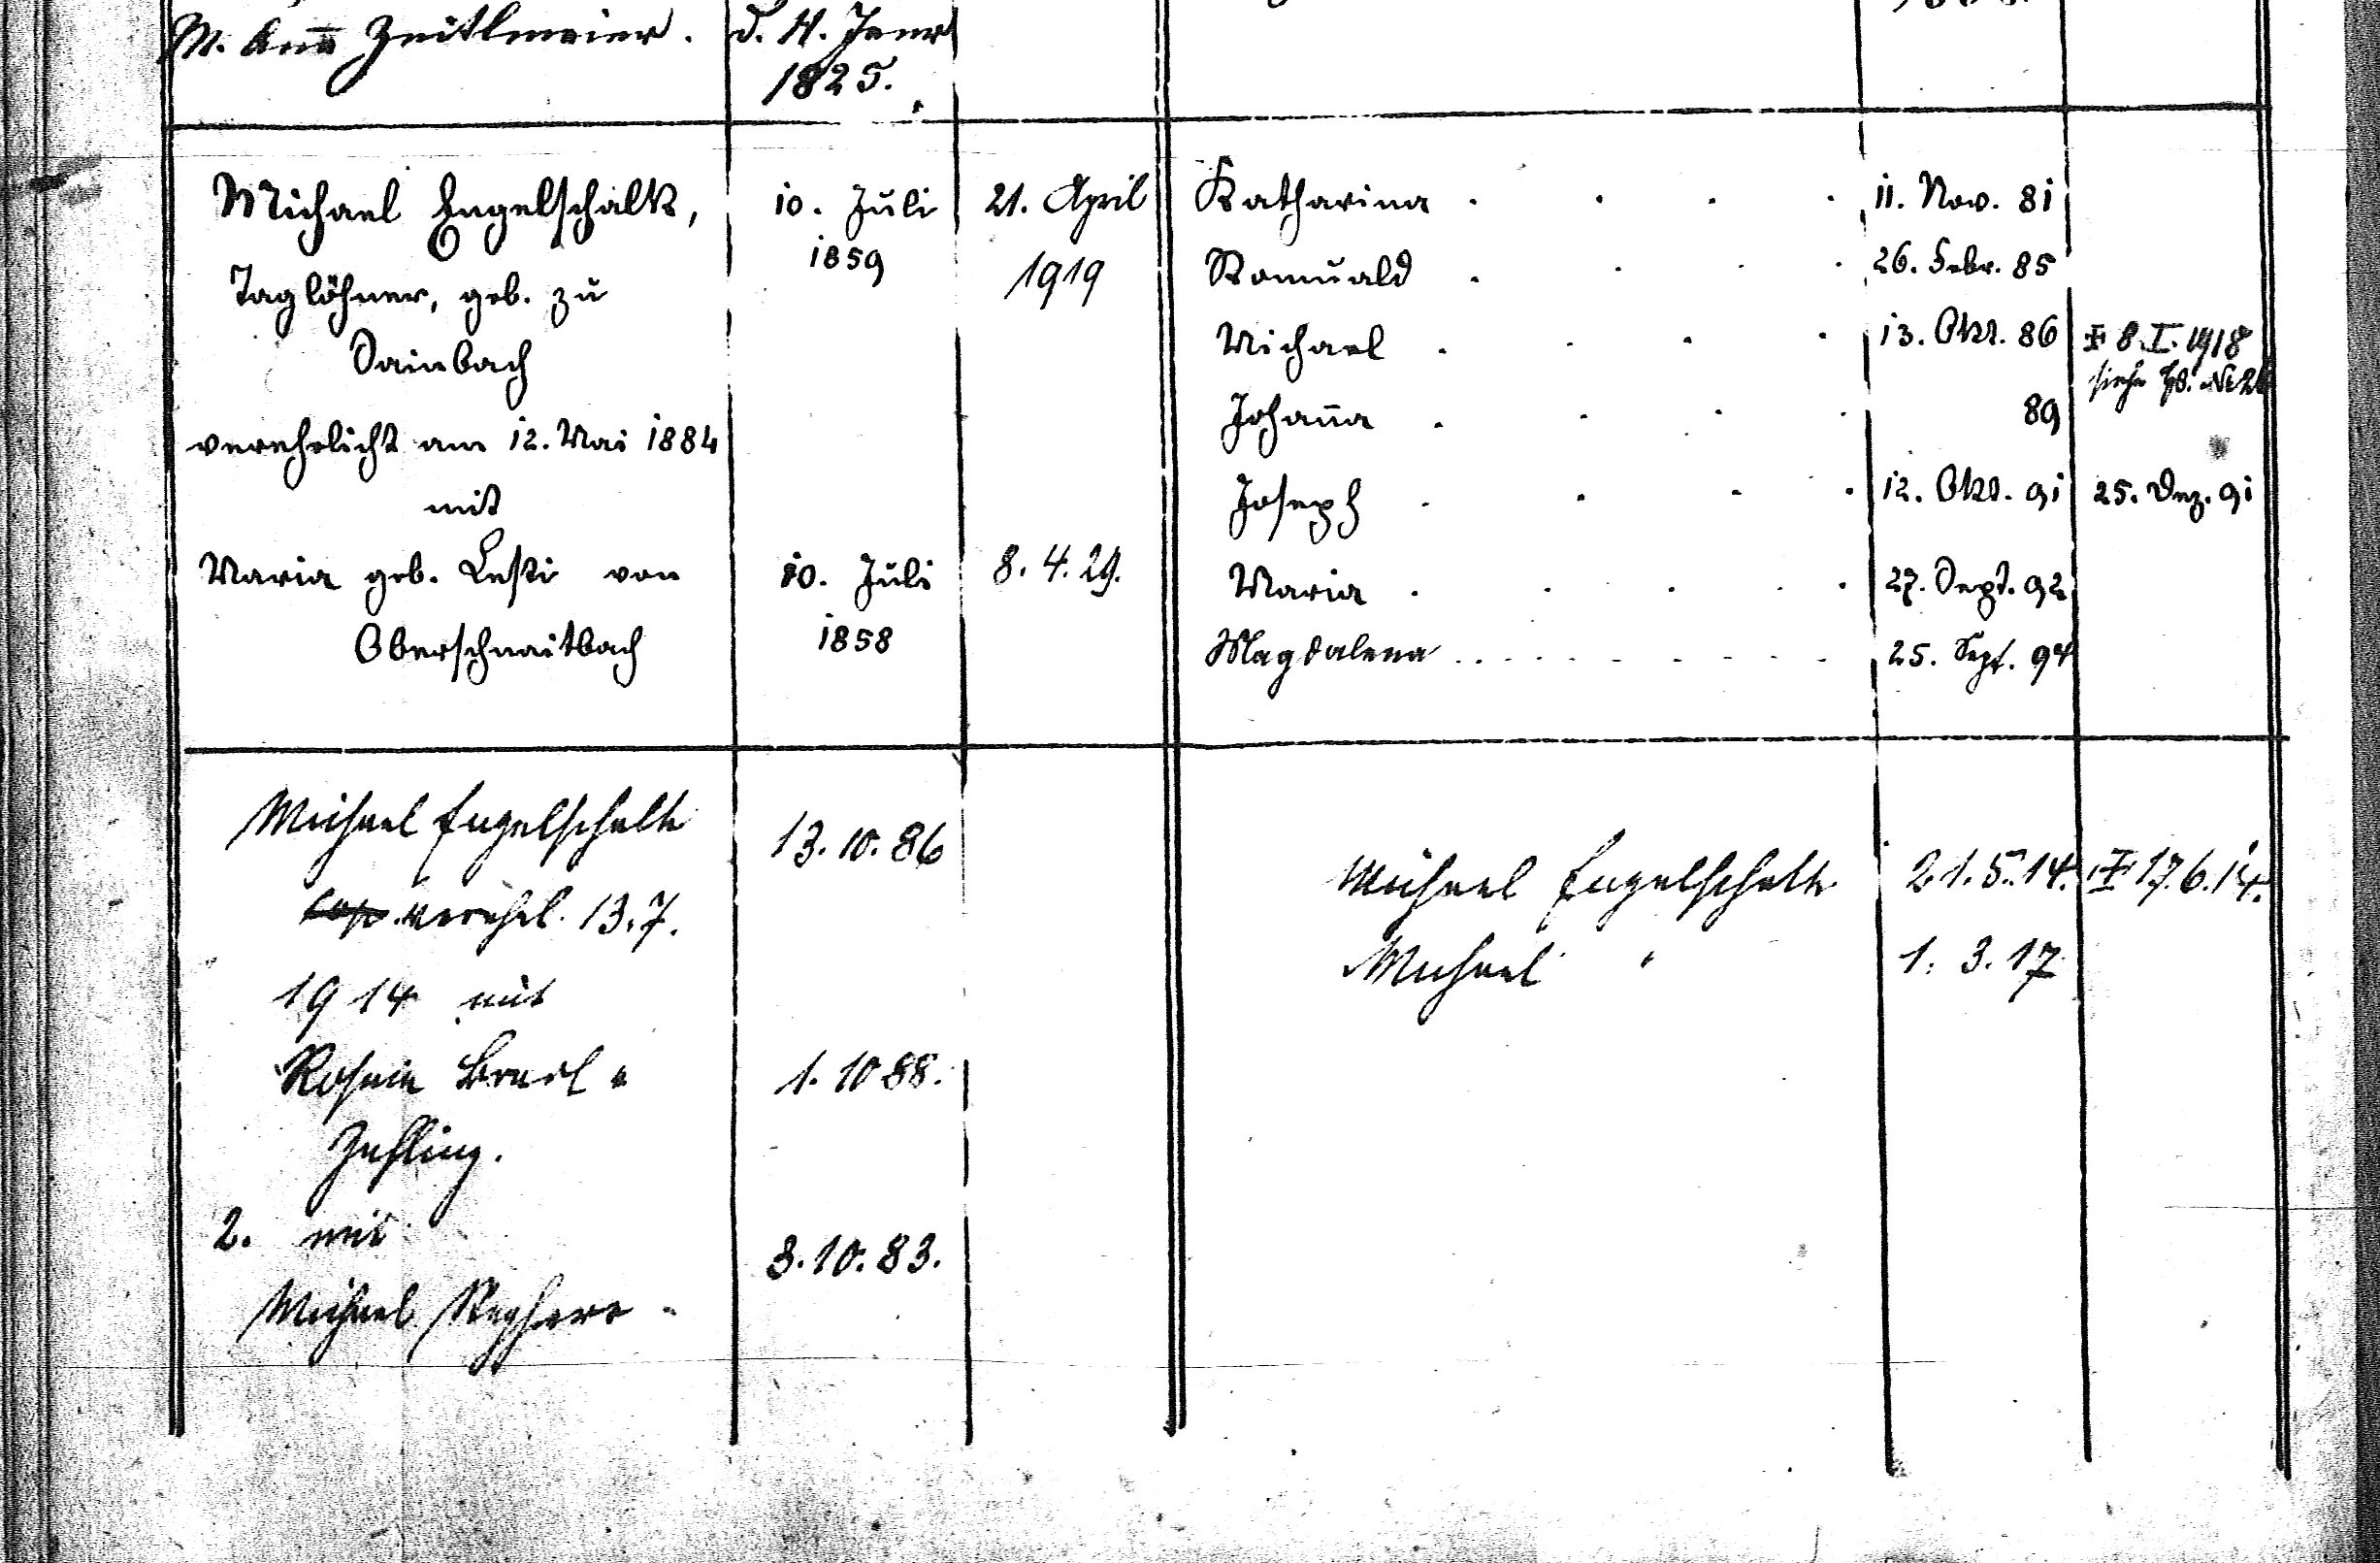 M. Anna Zeitlmeier. d. 11. Janr
1825.
Michael Engelschalk, 10. Juli 21. April Katharina . . . . 11. Nov. 81
1859 1919 Romuald . . . . 26. Febr. 85
Taglöhner, geb. zu
Sainbach Michael . . . . 13. Okt. 86 8. I. 1918
siehe Hs. Nr
Johanna . . . . 89
verehelicht am 12. Mai 1884
mit Joseph . . . . 12. Okt. 91 25. Dez. 91
Maria geb. Lesti von 10. Juli 8. 4. 29. Maria . . . . . 27. Sept. 92
Oberschnaitbach 1858 Magdalena . . . . . . . . . . 25. Sept. 94
Michael Engelschalk 13. 10. 86
Michael Engelschalk 21. 5. 14. 17. 6. 14.
cop. verehel. 13. 7.
Michael " 1. 3. 17
1914 mit
Rosina 1. 10 88.
2. mit 3. 10. 83.
Michael